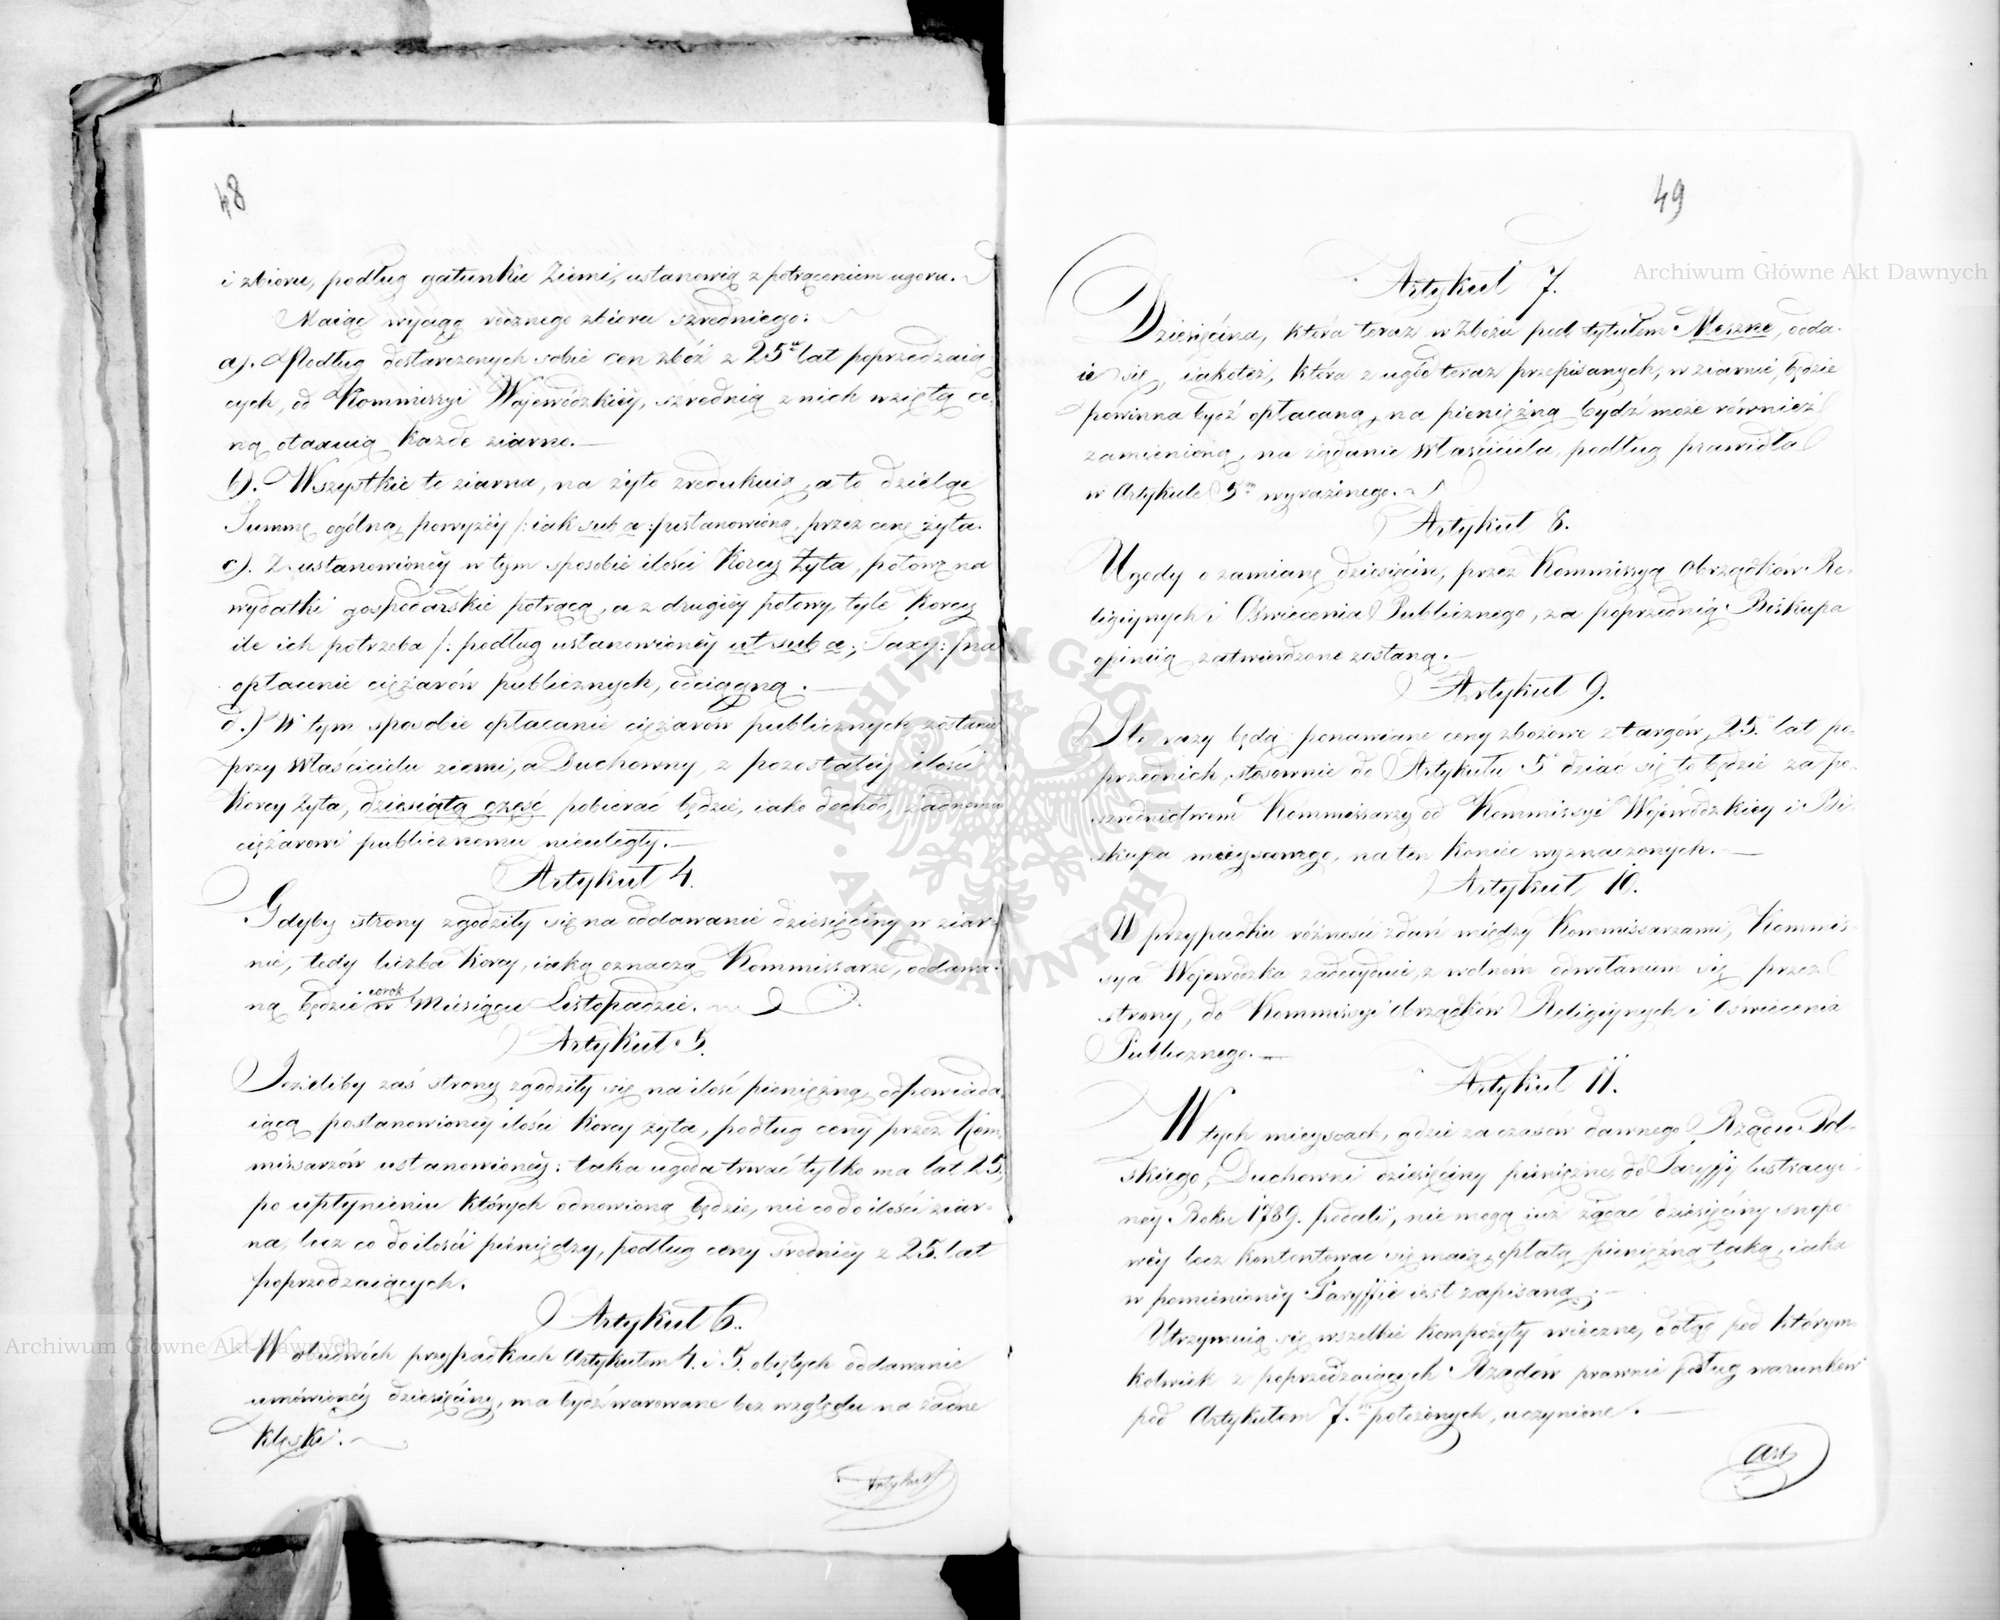 48
i zbioru, podług gatunku Ziemi, ustanowią z potrąceniem ugoru.
Maiąc wyciąg rocznego zbioru szredniego:
a). Podług dostarczonych sobie cen zbóż z 25u lat poprzedzaią
cych, od Kommissyi Wojewódzkiéy, szrednią z nich wziętą ce,
ną otaxuią każde ziarno.
b). Wszystkie te ziarna, na żyto zredukuią, a to dzieląc
Summę ogólną, powyżéy /: iak sub a :/ ustanowioną, przez cenę żyta.
c). Z ustanowionéy w tym sposobie ilości Korcy Żyta, połowę na
wydatki gospodarskie potrącą, a z drugiéy połowy, tyle Korcy
ile ich potrzeba /: podług ustanowionéy ut sub a; Taxy :/ na
opłacenie ciężarów publicznych, odciągną.
d.) W tym sposobie opłacanie ciężarów publicznych zostanie
przy Właścicielu ziemi, a Duchowny, z pozostałéj ilości
Korcy Żyta, dziesiątą część pobierać będzie, iako dochód, żadnemu
ciężarowi publicznemu nieuległy.
Artykuł 4.
Gdyby strony zgodziły się na oddawanie dziesięciny w ziar-
nie, tedy liczba Korcy, iaką oznaczą Kommissarze, oddawa-
ną będzie corok w Miesiącu Listopadzie.
Artykuł 5.
Jeżeliby zaś strony zgodziły się na ilość pieniężną, odpowiada-
iącą postanowionéy ilości Korcy żyta, podług ceny przez Kom,
missarzów ustanowionéy; taka ugoda trwać tylko ma lat 25,
po upłynieniu których odnowioną będzie, nie co do ilości ziar-
na, lecz co do ilości pieniędzy, podług ceny średniéy z 25. lat
poprzedzaiących.
Artykuł 6.
W obudwóch przypadkach Artykułem 4. i 5. obiętych oddawanie
umówionéy dziesięciny, ma bydź warowane bez względu na żadne
klęski.
Artykuł
49
Artykuł 7.
Dziesięcina, która teraz w Zbożu pod tytułem Meszne, odda-
ie się, iakoteż, która z ugód teraz przepisanych, w ziarnie, będzie
powinna bydź opłacaną, na pieniężną bydź może również
zamienioną, na żądanie Właściciela, podług prawidła
w Artykule 5m wyrażonego.
Artykuł 8.
Ugody o zamianę dziesięcin, przez Kommissyą Obrządków Re-
ligiynych i Oświecenia Publicznego, za poprzednią Biskupa
opiniią zatwierdzone zostaną.
Artykuł 9.
Ile razy będą ponawiane ceny zbożowe z targów, 25. lat po-
przednich, stosownie do Artykułu 5 dziać się to będzie za po-
szrednictwem Kommissarzy od Kommissyi Wojewódzkiey i Bi-
skupa mieyscowego, na ten koniec wyznaczonych.
Artykuł 10.
W przypadku różności zdań między Kommissarzami, Kommis-
sya Wojewódzka zadecyduie, z wolném odwołaniem się przez
strony, do Kommissyi Obrządków Religiynych i Oświecenia
Publicznego.
Artykuł 11.
W tych mieyscach, gdzie za czasów dawnego Rządu Pol-
skiego, Duchowni dziesięciny pieniężne, do Taryffy lustracyi-
néy Roku 1789. podali, nie mogą iuż żądać dziesięciny snopo-
wéy lecz kontentować się maią opłatą pieniężną taką, iaka
w pomienionéy Taryffie iest zapisaną.
Utrzymuią się wszelkie kompozyty wieczne, dotąd pod którym-
kolwiek z poprzedzaiących Rządów prawnie podług warunków
pod Artykułem 7. położonych, uczynione.
Art
Archiwum Główne Akt Dawnych
Archiwum Główne Akt Dawnych
ARCHIWUM GŁÓWNE AKT DAWNYCH